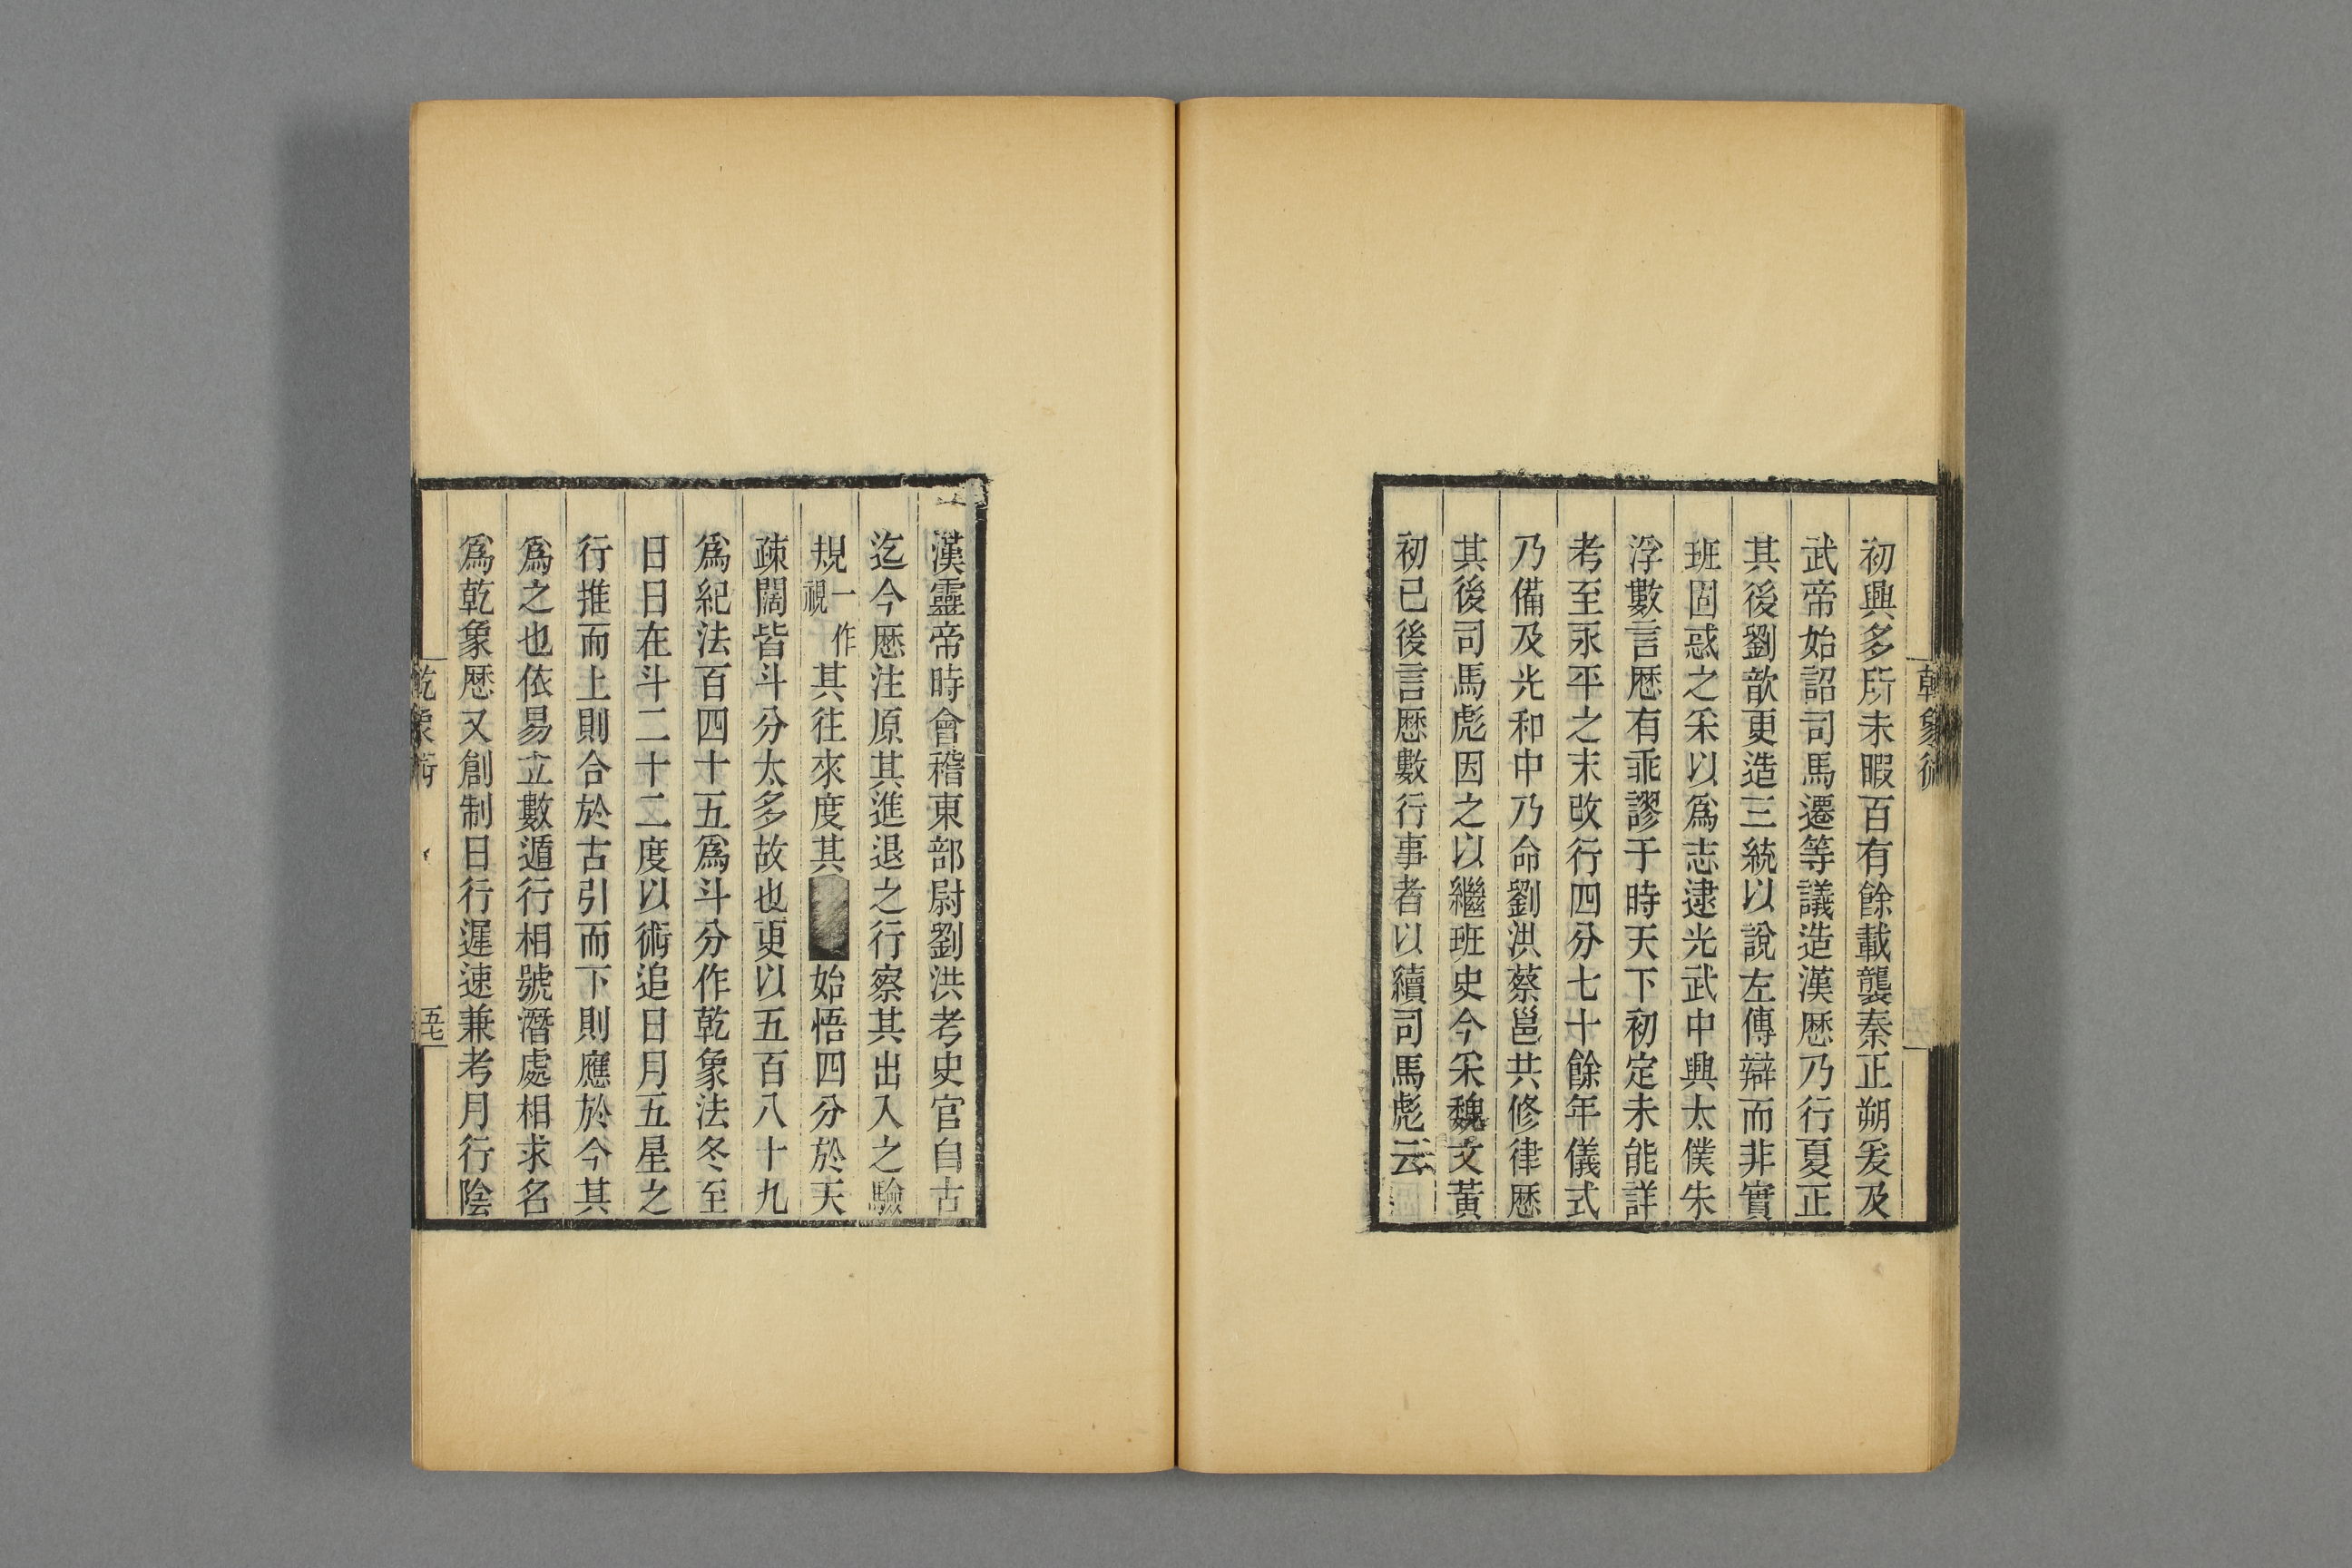 乾象術
初興多所未暇百有餘載襲秦正朔爰及
武帝始詔司馬遷等議造漢歷乃行夏正
其後劉歆更造三統以說左傳辯而非實
班固惑之采以爲志逮光武中興太僕朱
浮數言歷有乖謬于時天下初定未能詳
考至永平之末改行四分七十餘年儀式
乃備及光和中乃命劉洪蔡邕共修律歷
其後司馬彪因之以繼班史今采魏文黃
初已後言歷數行事者以續司馬彪云
漢靈帝時會稽東部尉劉洪考史官自古
迄今歷注原其進退之行察其出入之驗
規一作視其往來度其始悟四分於天
疎闊皆斗分太多故也更以五百八十九
爲紀法百四十五爲斗分作乾象法冬至
日日在斗二十二度以術追日月五星之
行推而上則合於古引而下則應於今其
爲之也依易立數遁行相號潛處相求名
爲乾象歷又創制日行遲速兼考月行陰
乾象術